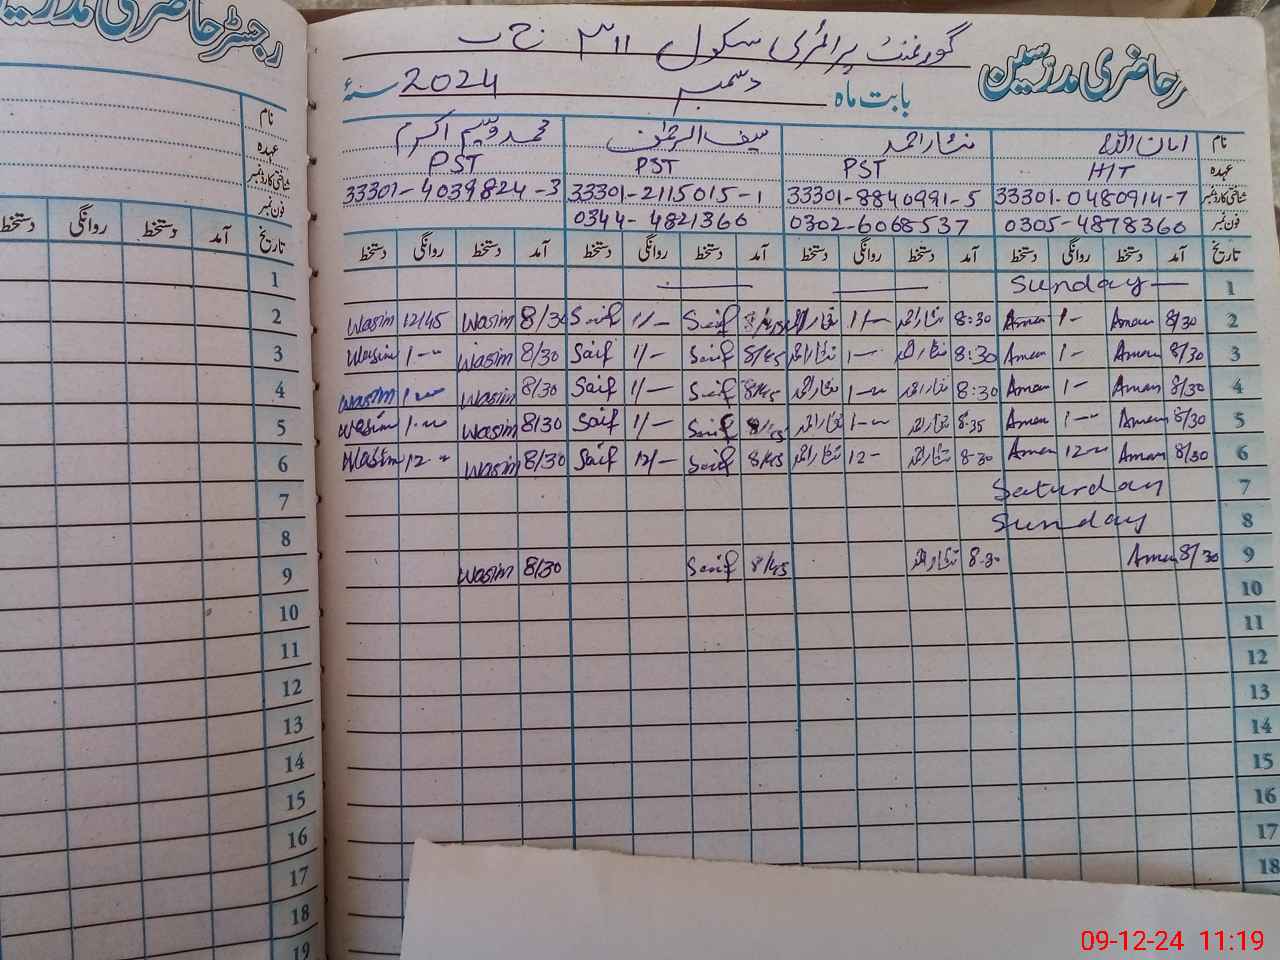 رجسٹر حاضری مدرسین
نام
عہدہ
شناختی کارڈ نمبر
فون نمبر
تاریخ آمد دستخط روانگی دستخط
1
2
3
4
5
6
7
8
9
10
11
12
13
14
15
16
17
18
19
رحاضری مدرسین
گورنمنٹ پرائمری سکول ۳۱۱ ج ب
بابت ماہ دسمبر 2024 سنۂ
نام امان اللہ نثار احمد سیف الرحمٰن محمد وسیم اکرم
عہدہ HT PST PST PST
شناختی کارڈ نمبر 33301-0480914-7 33301-8840991-5 33301-2115015-1 33301-4039824-3
فون نمبر 0305-4878360 0302-6068537 0344-4821360
تاریخ آمد دستخط روانگی دستخط آمد دستخط روانگی دستخط آمد دستخط روانگی دستخط آمد دستخط روانگی دستخط
1 Sunday
2 8/30 Aman 1- Aman 8:30 نثار احمد 1/- نثار احمد 8/45 Saif 1/- Saif 8/30 Wasim 12/45 Wasim
3 8/30 Aman 1- Aman 8:30 نثار احمد 1- نثار احمد 8/45 Saif 1/- Saif 8/30 Wasim 1- Wasim
4 8/30 Aman 1- Aman 8:30 نثار احمد 1- نثار احمد 8/45 Saif 1/- Saif 8/30 Wasim 1- Wasim
5 8/30 Aman 1- Aman 8-35 نثار احمد 1- نثار احمد Saif 1/- Saif 8/30 Wasim 1- Wasim
6 8/30 Aman 12- Aman 8-30 نثار احمد 12- نثار احمد 8/45 Saif 12/- Saif 8/30 Wasim 12- Wasim
7 Saturday
8 Sunday
9 8/30 Aman 8-30 نثار احمد 8/45 Saif 8/30 Wasim
10
11
12
13
14
15
16
17
18
09-12-24 11:19